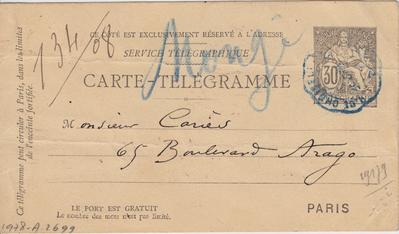 CE CÔTÉ EST EXCLUSIVEMENT RÉSERVÉ À L'ADRESSE
SERVICE TÉLÉGRAPHIQUE
CARTE-TÉLÉGRAMME
134/08
30
Monsieur Cariès
65 Boulevard Arago
Ce télégramme peut circuler à Paris, dans les limites
de l'enceinte fortifiée.
LE PORT EST GRATUIT
Le nombre des mots n'est pas limité.
PARIS
19179
1978-A.2699